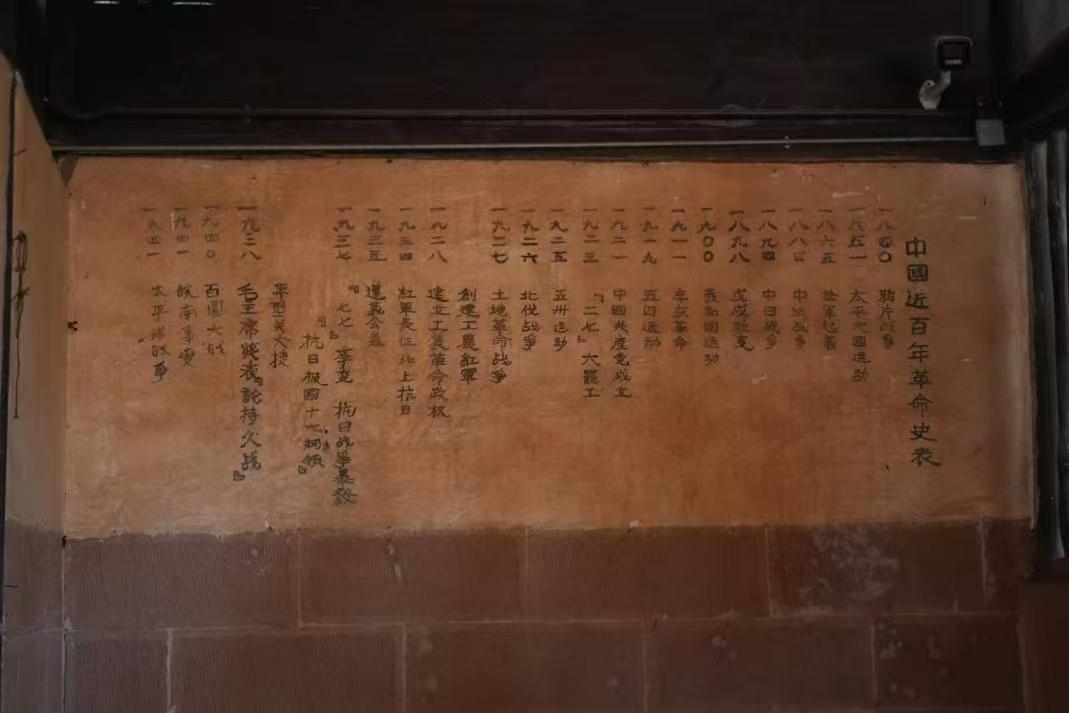 中國近百年革命史表
一八四〇 鸦片战争
一八五一 太平天國运动
一八六五 捻軍起義
一八八四 中法战争
一八九四 中日战争
一八九八 戊戌政变
一九〇〇 義和團运动
一九一一 辛亥革命
一九一九 五四运动
一九二一 中國共産党成立
一九二三 『二七』大罷工
一九二五 五卅运动
一九二六 北伐战争
一九二七 土地革命战争
創建工農紅軍
一九二八 建立工農革命政权
一九三四 紅軍長征北上抗日
一九三五 遵義会義
一九三七 『七七』事变 抗日战爭暴發
『抗日救國十大綱領』
平型关大捷
一九三八 毛主席發表『論持久战』
一九四〇 百團大战
一九四一 皖南事變
一九四一 太平洋战爭